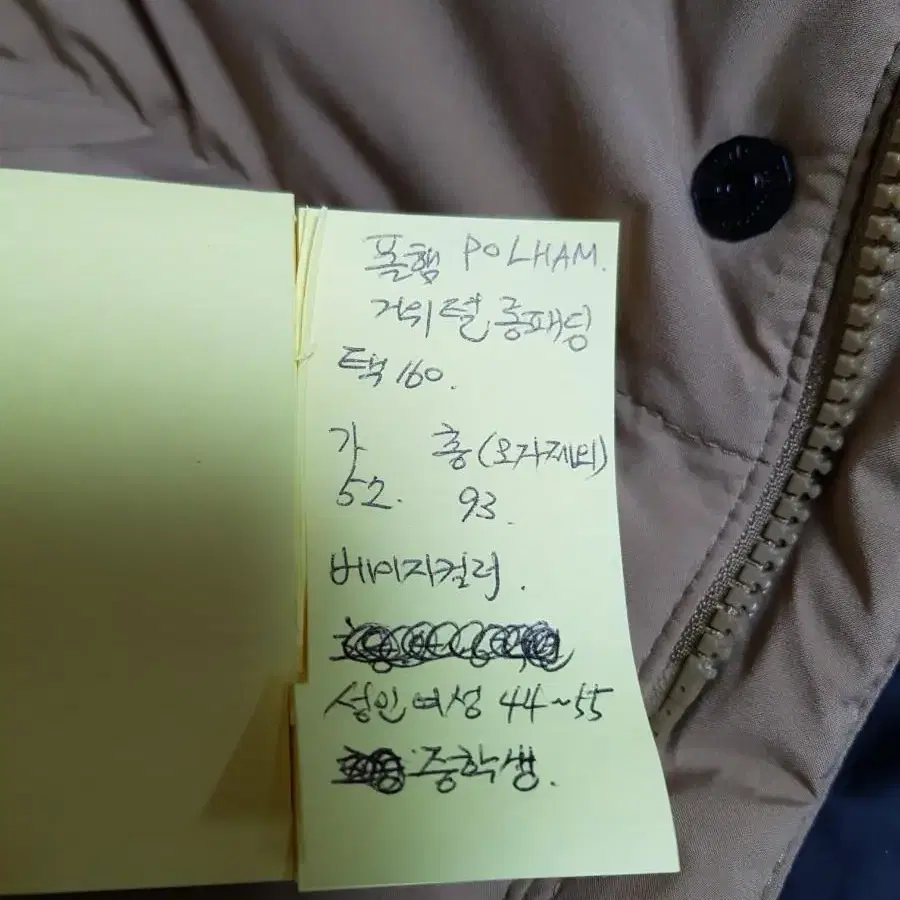 폴햄 POLHAM.
거위털 롱패딩
택 160.
가 총(모자제외)
52. 93.
베이지컬러.
성인여성 44~55
중학생.